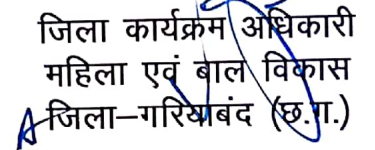 जिला कार्यक्रम अधिकारी
महिला एवं बाल विकास
जिला–गरियाबंद (छ.ग.)